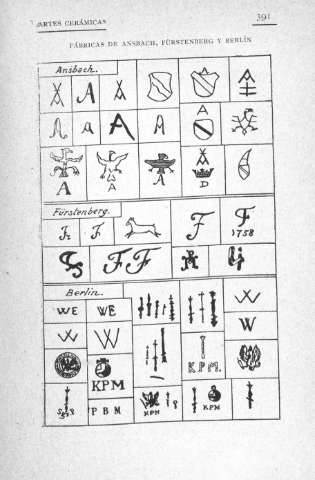 ARTES CERÁMICAS
391
FÁBRICAS DE ANSBACH, FÜRSTENBERG Y BERLÍN
Ansbach.
A
A a A A A
A A A D
Fürstenberg.
F F F
1758
F F
Berlin.
WE WE
W
W W
KPM
K.P.M.
S P B M KPM KPM